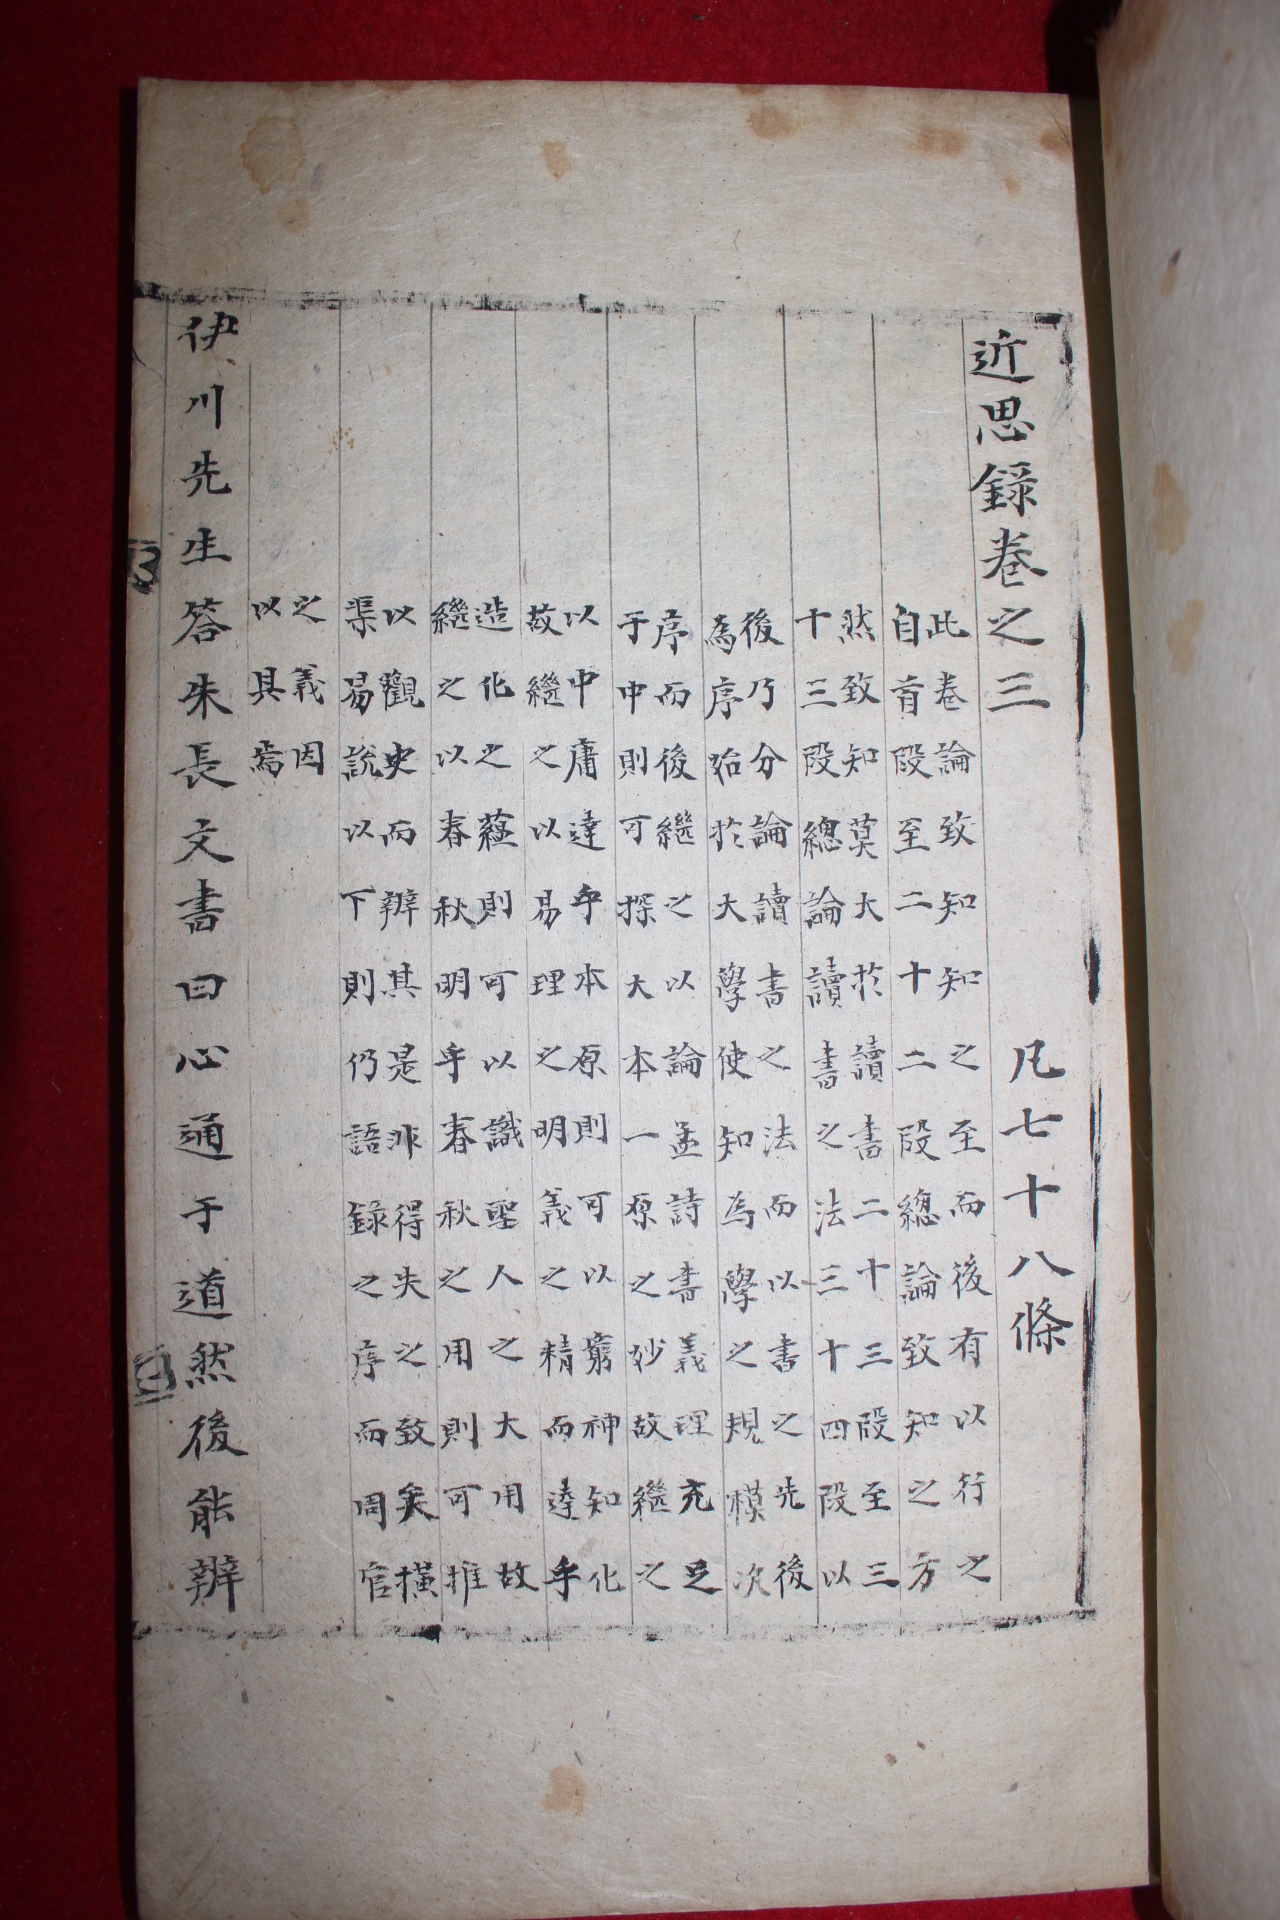 近思錄卷之三 凡七十八條
此卷論致知知之至而後有以行之
自首段至二十二段總論致知之方
然致知莫大於讀書二十三段至三
十三段總論讀書之法三十四段以
後乃分論讀書之法而以書之先後
為序始於大學使知為學之規模次
序而後繼之以論孟詩書義理充足
于中則可探大本一原之妙故繼之
以中庸達乎本原則可以窮神知化
故繼之以易理之明義之精而達乎
造化之蘊則可以識聖人之大用故
繼之以春秋明乎春秋之用則可推
以觀史而辨其是非得失之致矣橫
渠易說以下則仍語錄之序而周官
之義因
以具焉
伊川先生答朱長文書曰心通于道然後能辨